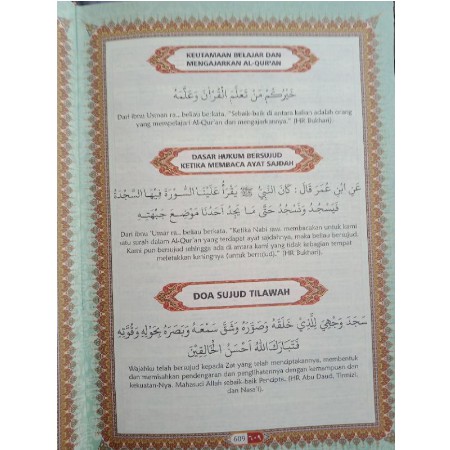 KEUTAMAAN BELAJAR DAN
MENGAJARKAN AL-QUR'AN
خَيْرُكُمْ مَنْ تَعَلَّمَ الْقُرْآنَ وَعَلَّمَهُ
Dari Ibnu Usman ra., beliau berkata. "Sebaik-baik di antara kalian adalah orang
yang mempelajari Al-Qur'an dan mengajarkannya." (HR Bukhari).
DASAR HUKUM BERSUJUD
KETIKA MEMBACA AYAT SAJDAH
عَنِ ابْنِ عُمَرَ قَالَ : كَانَ النَّبِيُّ ﷺ يَقْرَأُ عَلَيْنَا السُّوْرَةَ فِيْهَا السَّجْدَةُ
فَيَسْجُدُ وَنَسْجُدُ حَتَّى مَا يَجِدُ أَحَدُنَا مَوْضِعَ جَبْهَتِهِ
Dari Ibnu 'Umar ra., beliau berkata. "Ketika Nabi saw. membacakan untuk kami
satu surah dalam Al-Qur'an yang terdapat ayat sajdahnya, maka beliau bersujud.
Kami pun bersujud sehingga ada di antara kami yang tidak kebagian tempat
meletakkan keningnya (untuk bersujud)." (HR Bukhari).
DOA SUJUD TILAWAH
سَجَدَ وَجْهِيَ لِلَّذِيْ خَلَقَهُ وَصَوَّرَهُ وَشَقَّ سَمْعَهُ وَبَصَرَهُ بِحَوْلِهِ وَقُوَّتِهِ
فَتَبَارَكَ اللهُ أَحْسَنُ الْخَالِقِيْنَ
Wajahku telah bersujud kepada Zat yang telah menciptakannya, membentuk
dan memisahkan pendengaran dan penglihatannya dengan kemampuan dan
kekuatan-Nya. Mahasuci Allah sebaik-baik Pencipta. (HR Abu Daud, Tirmizi,
dan Nasa'i).
609 ٦٠٩